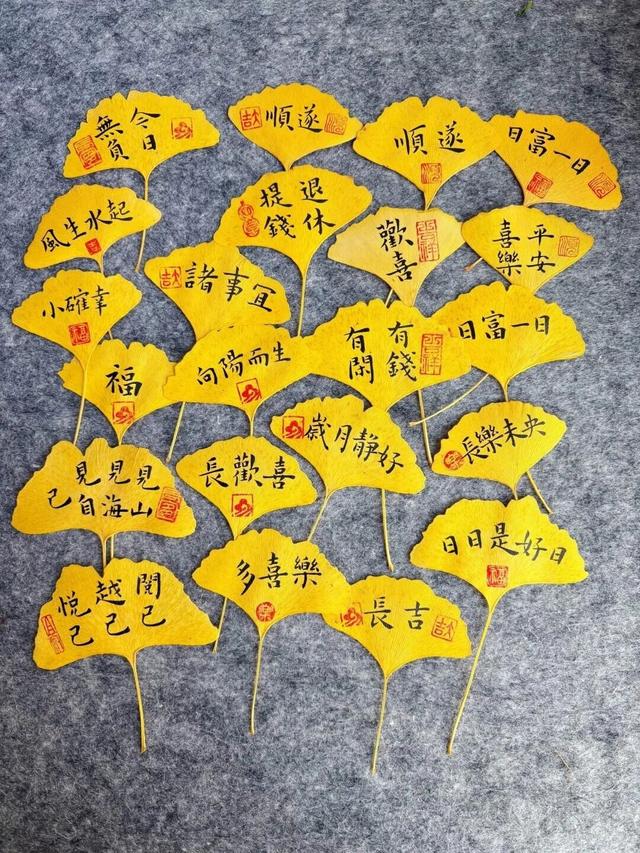 今日
無負
順遂
順遂
日富一日
風生水起
提錢
退休
歡喜
平安
喜樂
諸事宜
小確幸
福
向陽而生
有錢
有閑
日富一日
歲月靜好
長樂未央
長歡喜
見山
見海
見自
己
日日是好日
閱己
越己
悅己
多喜樂
長吉